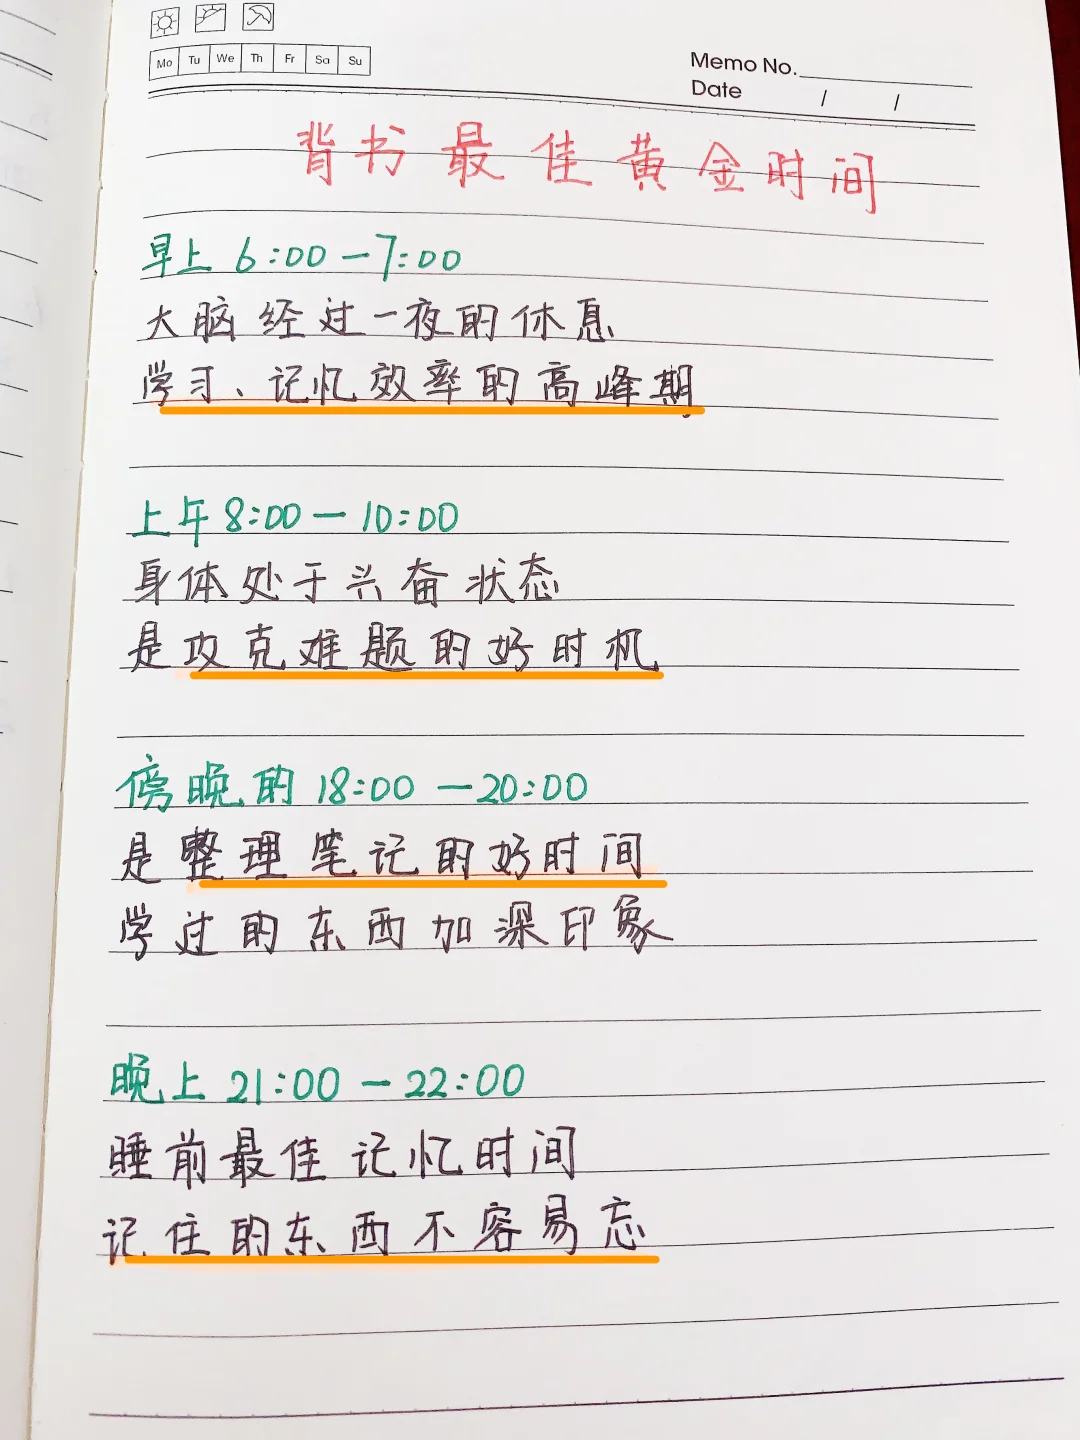 Mo Tu We Th Fr Sa Su
Memo No.
Date / /
背书最佳黄金时间
早上 6:00—7:00
大脑经过一夜的休息
学习、记忆效率的高峰期
上午 8:00—10:00
身体处于兴奋状态
是攻克难题的好时机
傍晚的 18:00—20:00
是整理笔记的好时间
学过的东西加深印象
晚上 21:00—22:00
睡前最佳记忆时间
记住的东西不容易忘